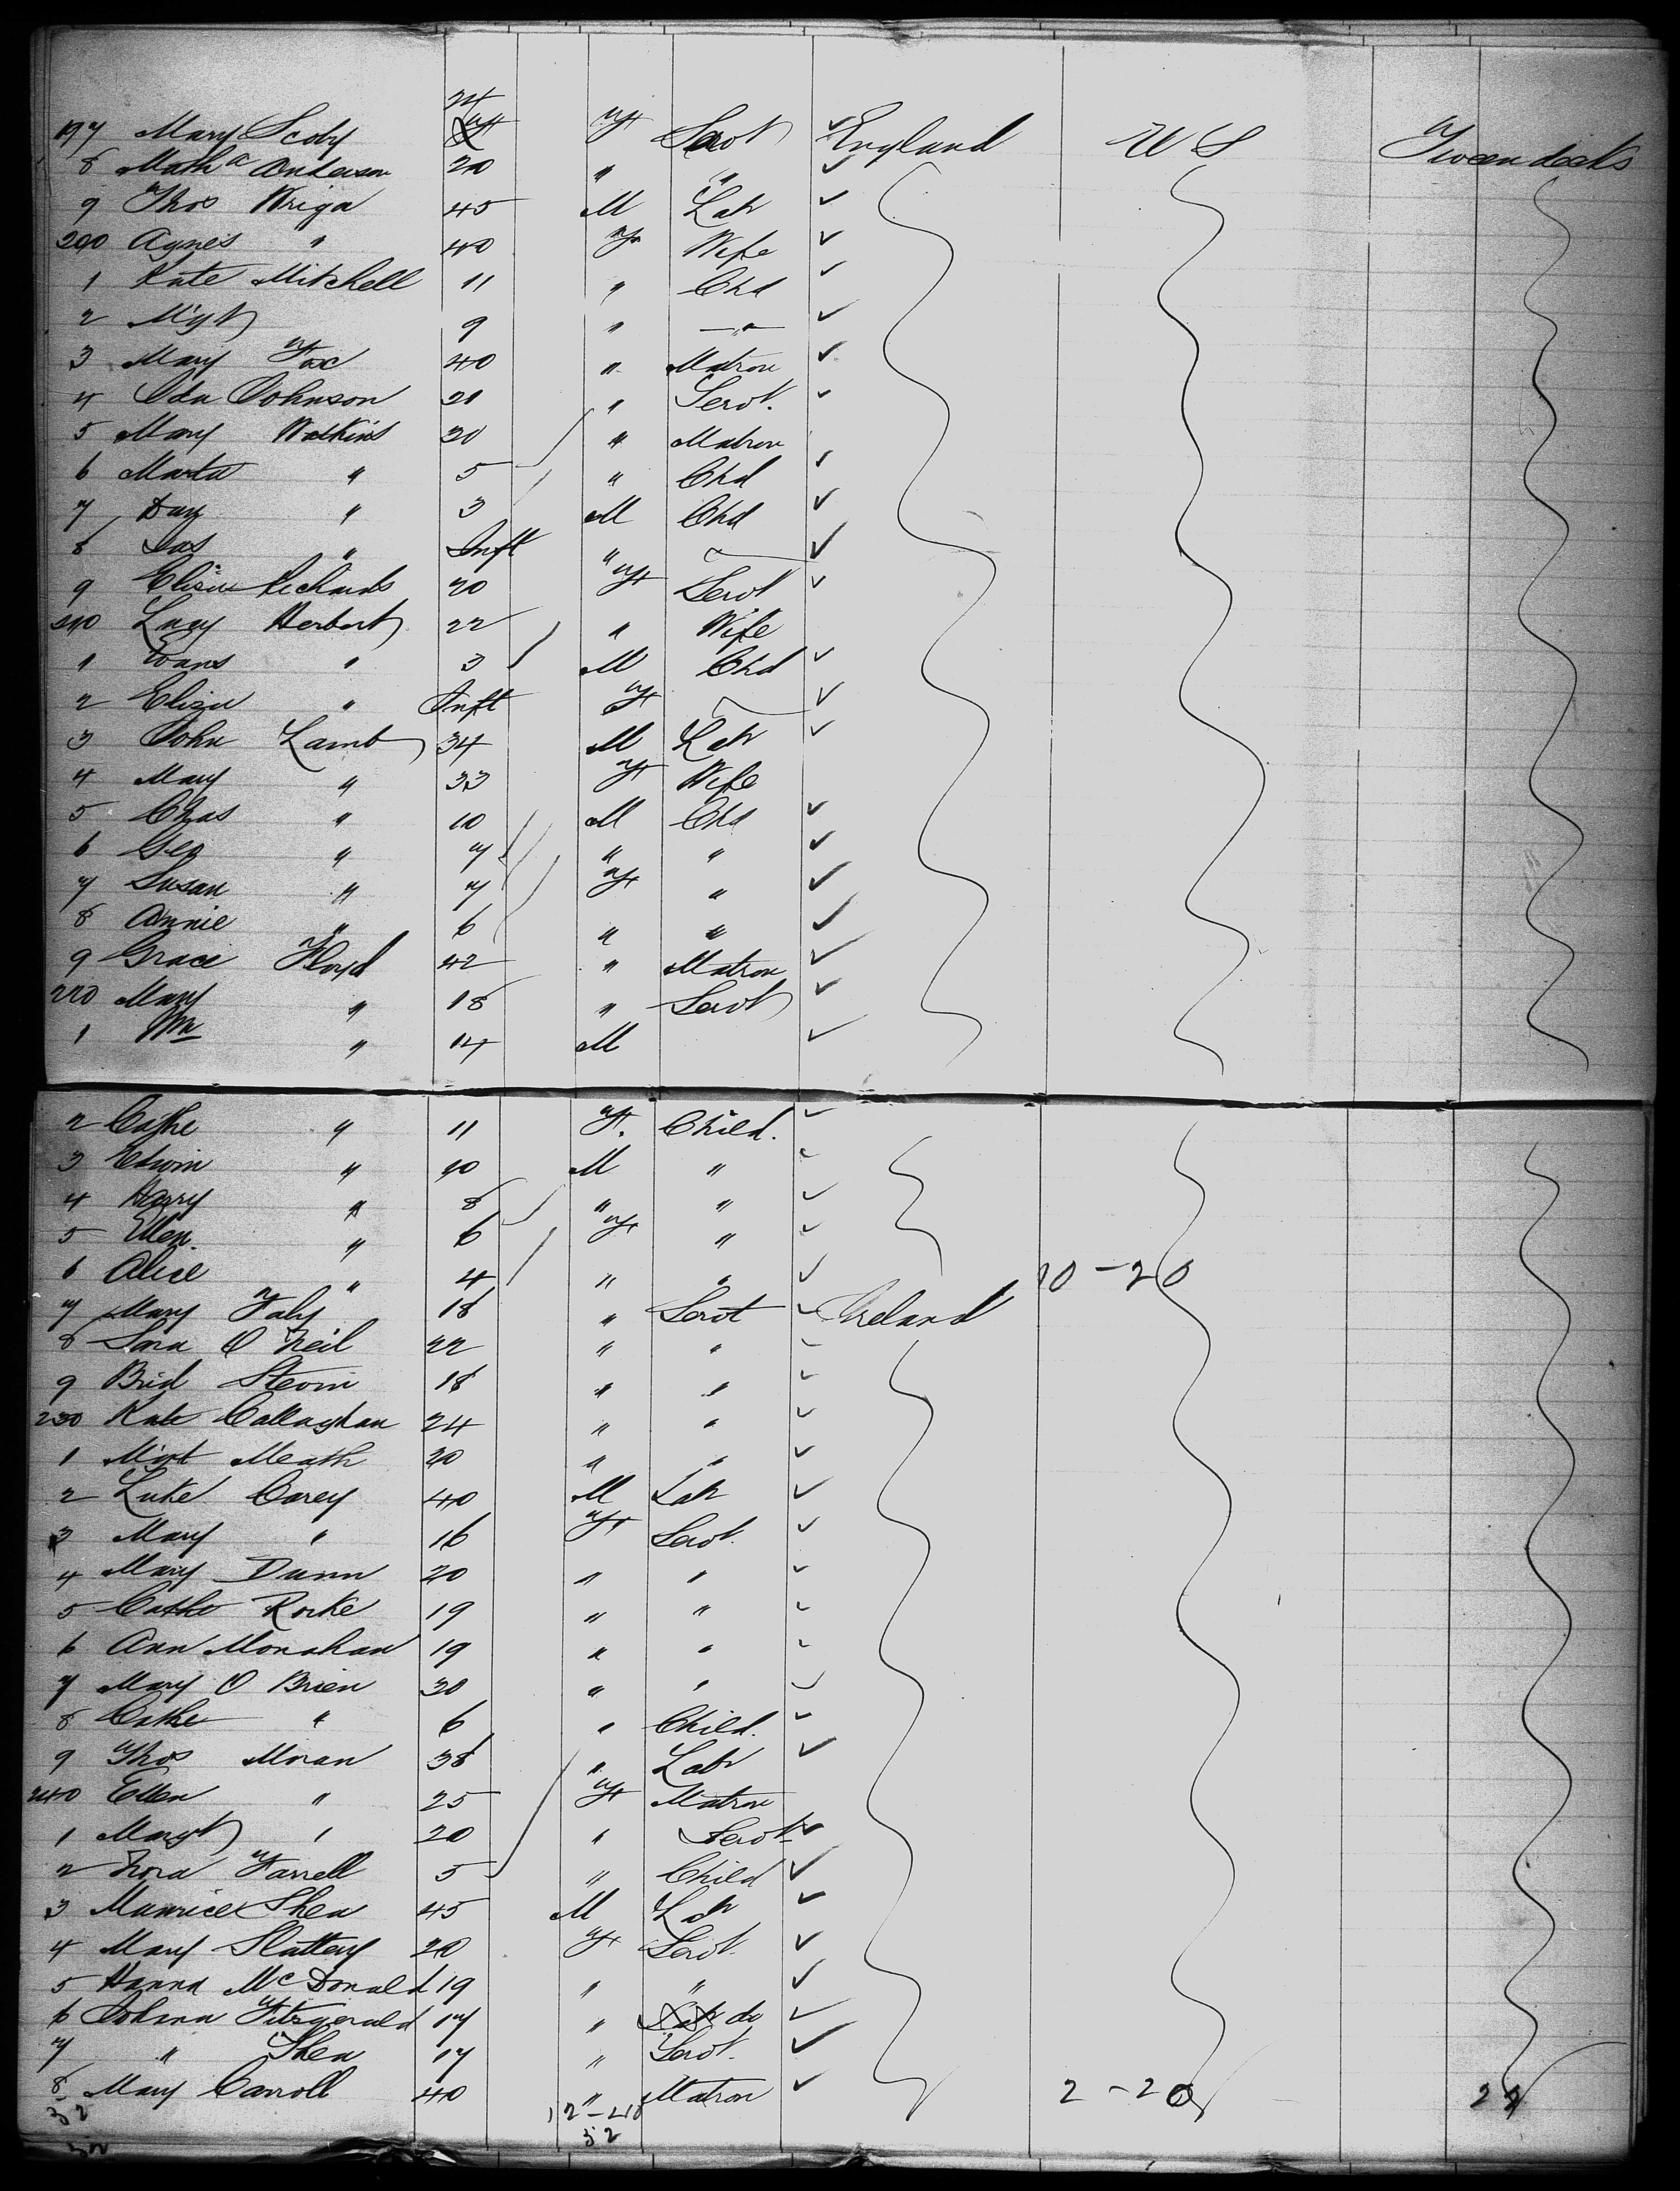 24
197 Mary Scoby F Servt England U S Tween decks
8 Matha Anderson 20 " "
9 Thos Wriga 45 M Labr
200 Agnes " 40 F Wife
1 Kate Mitchell 11 " Chd
2 Mgt 9 " "
3 Mary Fox 40 " Matron
4 Ida Johnson 20 " Servt.
5 Mary Watkins 30 " Matron
6 Marta " 5 " Chd
7 Day " 3 M Chd
8 Jas " Inft "
9 Eliza Richards 20 F Servt
210 Lucy Herbert 22 " Wife
1 Evans " 3 M Chd
2 Eliza " Inft F
3 John Lamb 34 M Labr
4 Mary " 33 F Wife
5 Chas " 10 M Chd
6 Geo " 7 " "
7 Susan " 7 F "
8 Annie " 6 " "
9 Grace Floyd 42 " Matron
220 Mary " 18 " Servt
1 Wm " 14 M
2 Cathe " 11 F. Child.
3 Edwin " 10 M "
4 Harry " 8 " "
5 Ellen " 6 F "
6 Alice " 4 " " 10-20
7 Mary Fahy 18 " Servt Ireland
8 Sara O Neil 22 " "
9 Brid 18 " "
230 Kate Callaghan 24 " "
1 Mgt Meath 20 " "
2 Luke Carey 40 M Labr
3 Mary " 16 F Servt.
4 Mary Dunn 20 " "
5 Cathe Rorke 19 " "
6 Ann Monahan 19 " "
7 Mary O Brien 30 " "
8 Cathe " 6 " Child.
9 Thos Moran 38 " Labr
240 Ellen " 25 F Matron
1 Margt " 20 " Servt
2 Nora Farrell 5 " Child
3 Maurice Shea 45 M Labr
4 Mary Slattery 20 F Servt.
5 Hanna McDonald 19 " "
6 Johana Fitzgerald 17 " do
7 " Shea 17 " Servt.
8 Mary Carroll 40 " Matron 2-20 22
52 12-210
52 52